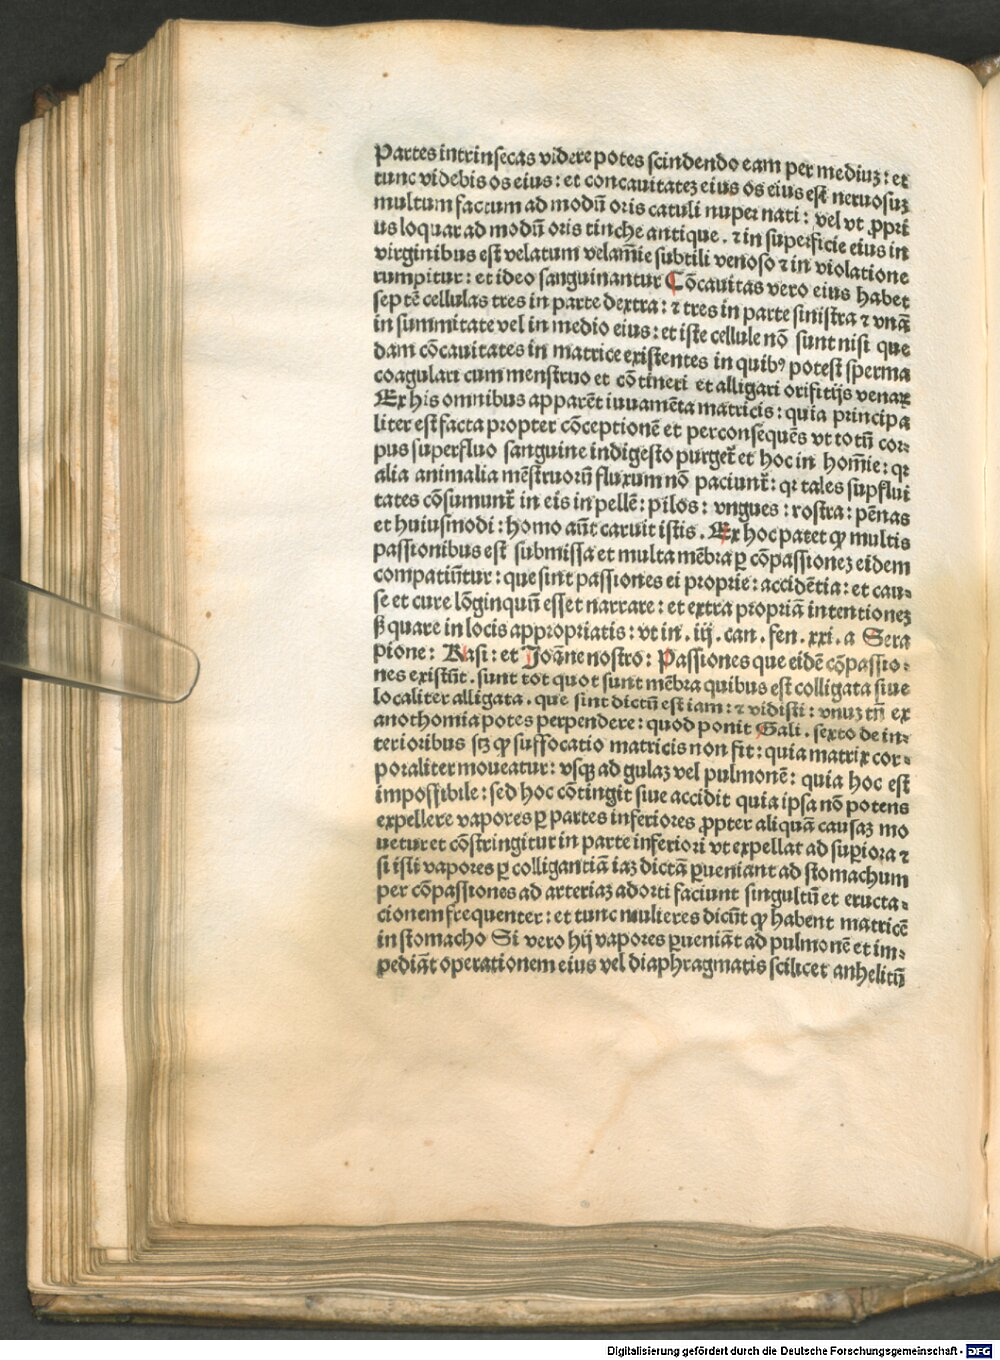 Partes intrinsecas videre potes scindendo eam per mediuꝫ: et
tunc videbis os eius: et concauitateꝫ eius os eius est neruosuꝫ
multum factum ad modū oris catuli nuper nati: vel vt ꝓpri
us loquar ad modū oris tinche antique. ⁊ in superficie eius in
virginibus est velatum velam̄ie subtili venoso ⁊ in violatione
rumpitur: et ideo sanguinantur Cōcauitas vero eius habet
septē cellulas tres in parte dextra: ⁊ tres in parte sinistra ⁊ vnā
in summitate vel in medio eius: et iste cellule nō sunt nisi que
dam cōcauitates in matrice existentes in quibꝰ potest sperma
coagulari cum menstruo et cōtineri et alligari orifitijs venaꝝ
Ex his omnibus apparēt iuuamēta matricis: quia principa
liter est facta propter cōceptionē et per consequēs vt totū cor⸗
pus superfluo sanguine indigesto purget̄ et hoc in hom̄ie: qꝛ
alia animalia mēstruorū fluxum nō paciunt̄: qꝛ tales supflui
tates cōsumunt̄ in eis in pellē: pilos: vngues: rostra: pēnas
et huiusmodi: homo aūt caruit istis. Ex hoc patet ꝙ multis
passionibus est submissa et multa mēbra ꝑ cōpassioneꝫ eidem
compatiūtur: que sint passiones ei proprie: accidētia: et cau⸗
se et cure lōginquū esset narrare: et extra propriā intentioneꝫ
ß quare in locis appropriatis: vt in. iij. can. fen. xxi. a Sera
pione: Rasi: et Joāne nostro: Passiones que eidē cōpassio⸗
nes existūt. sunt tot quot sunt mēbra quibus est colligata siue
localiter alligata. que sint dictū est iam: ⁊ vidisti: vnuꝫ tn̄ ex
anothomia potes perpendere: quod ponit Gali. sexto de in⸗
terioribus scꝫ ꝙ suffocatio matricis non fit: quia matrix cor⸗
poraliter moueatur: vsqꝫ ad gulaꝫ vel pulmonē: quia hoc est
impossibile: sed hoc cōtingit siue accidit quia ipsa nō potens
expellere vapores ꝑ partes inferiores ꝓpter aliquā causaꝫ mo
uetur et cōstringitur in parte inferiori vt expellat ad supiora ⁊
si isti vapores ꝑ colligantiā iaꝫ dictā ꝑueniant ad stomachum
per cōpassiones ad arteriaꝫ adorti faciunt singultū et eructa⸗
cionem frequenter: et tunc mulieres dicūt ꝙ habent matricē
in stomacho Si vero hij vapores ꝑueniāt ad pulmonē et im⸗
pediāt operationem eius vel diaphragmatis scilicet anhelitū
Digitalisierung gefördert durch die Deutsche Forschungsgemeinschaft - DFG